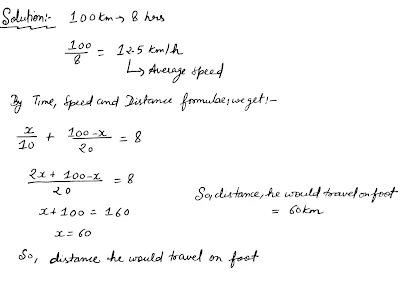 Solution:- 100 km → 8 hrs
100/8 = 12.5 km/h
↳ Average speed
By Time, Speed and Distance formulae, we get:-
x/10 + 100-x/20 = 8
2x + 100-x/20 = 8
x+100 = 160
x = 60
So, distance, he would travel on foot
= 60km
So, distance he would travel on foot